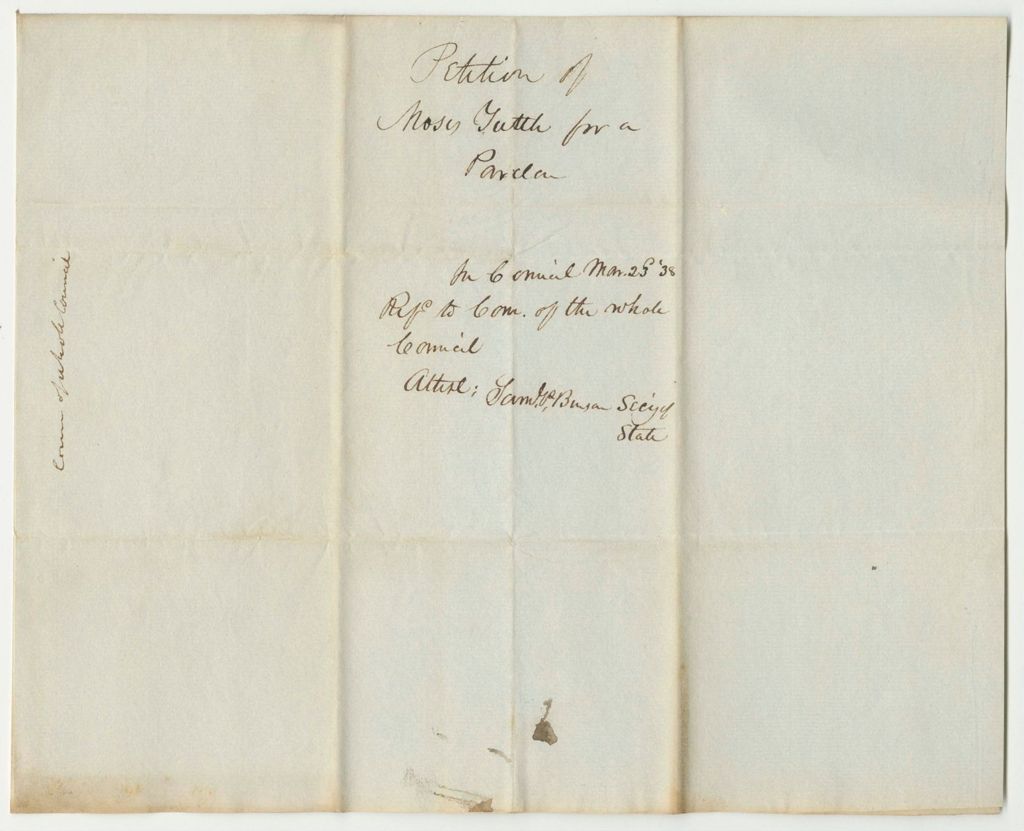 Petition of
Moses Tuttle for a
Pardon
In Council Mar. 23 '38
Refd to Com. of the whole
Council
Attest; Saml P. Benson Sec'y of
State
Comm of whole Council